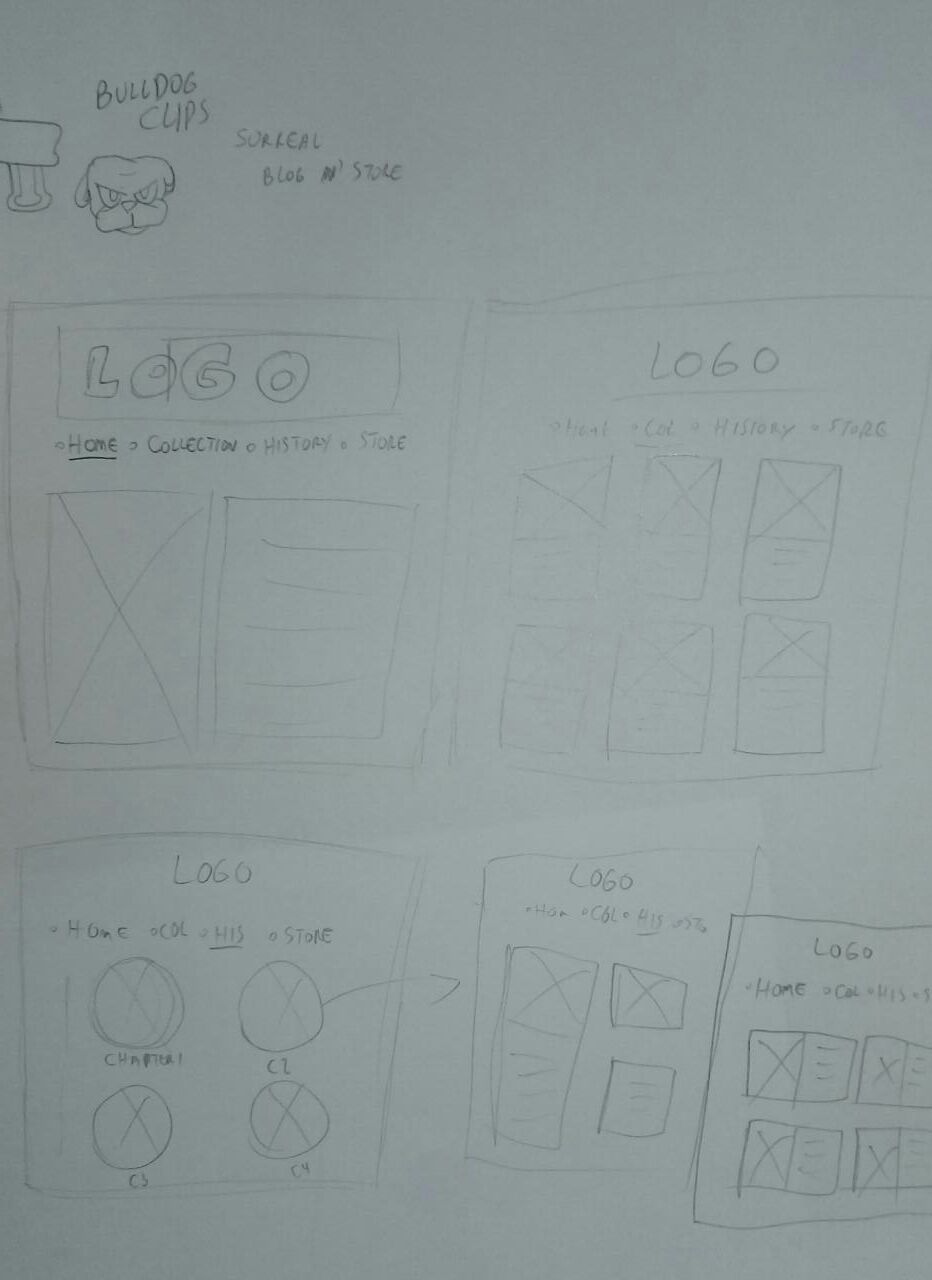 BULLDOG
CLIPS
SURREAL
BLOG N' STORE
LOGO
HOME COLLECTION HISTORY STORE
LOGO
HOME COL HISTORY STORE
LOGO
HOME COL HIS STORE
CHAPTER 1
C2
C3
C4
LOGO
HOM COL HIS STO
LOGO
HOME COL HIS S